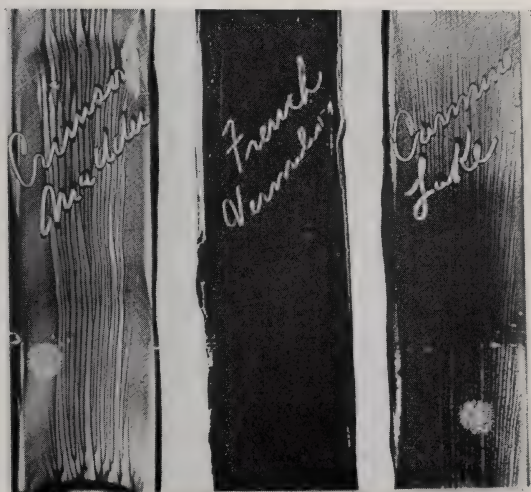 Crimson
Madder
French
Vermilion
Carmine
Lake